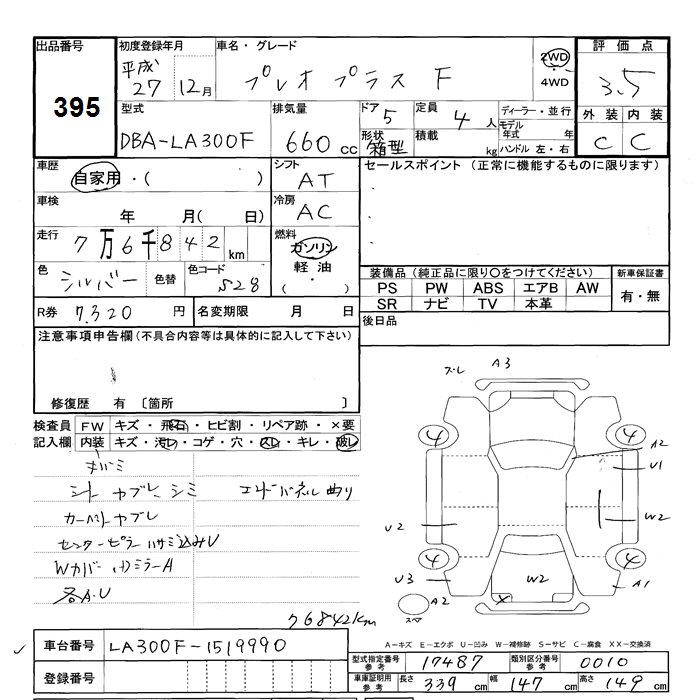 出品番号
395
初度登録年月
平成
27 12月
車名・グレード
プレオプラス F
2WD
・
4WD
評価点
3.5
外装 内装
C C
型式
DBA-LA300F
排気量
660 cc
ドア 5
形状 箱型
定員 4 人
積載 kg
ディーラー・並行
モデル年式 年
ハンドル 左・右
車歴
自家用・( )
シフト
AT
セールスポイント(正常に機能するものに限ります)
車検
年 月( 日)
冷房
AC
走行
7万6千842 km
燃料
ガソリン
軽油
( ・ )
色
シルバー
色替
色コード
S28
装備品(純正品に限り○をつけてください)
PS PW ABS エアB AW
SR ナビ TV 本革
新車保証書
有・無
R券 7,320 円
名変期限 月 日
後日品
注意事項申告欄(不具合内容等は具体的に記入して下さい)
修復歴 有 〔箇所 〕
検査員
記入欄
FW キズ・飛石・ヒビ割・リペア跡・×要
内装 キズ・汚レ・コゲ・穴・スレ・キレ・破レ
シート ヤブレ、シミ
エンドパネル曲り
カーペットヤブレ
センターピラーハサミ込みU
WカバーハリミラーA
各A.U
76842km
ズレ A3
4 4
A2
U1
U2
W2
4 4
U3
A2
W2
X
A1
スペア
車台番号 LA300F-1519990
登録番号
A-キズ E-エクボ U-凹み W-補修跡 S-サビ C-腐食 XX-交換済
型式指定番号
参考
17487
類別区分番号
参考
0010
車庫証明用
参考
長さ 339 cm 幅 147 cm 高さ 149 cm